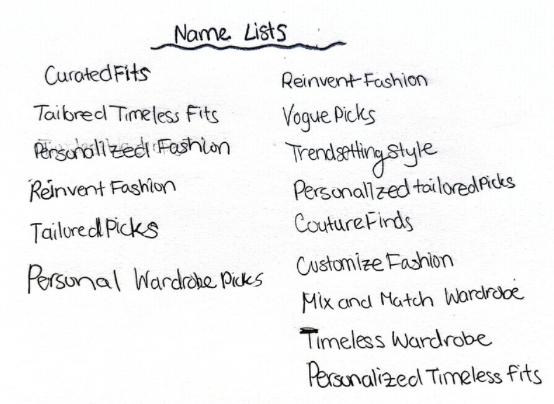 Name Lists
CuratedFits
Tailored Timeless Fits
Personalized Fashion
Reinvent Fashion
TailoredPicks
Personal Wardrobe Picks
Reinvent Fashion
Vogue Picks
Trendsetting Style
Personalized tailored Picks
Couture Finds
Customize Fashion
Mix and Match Wardrobe
Timeless Wardrobe
Personalized Timeless Fits